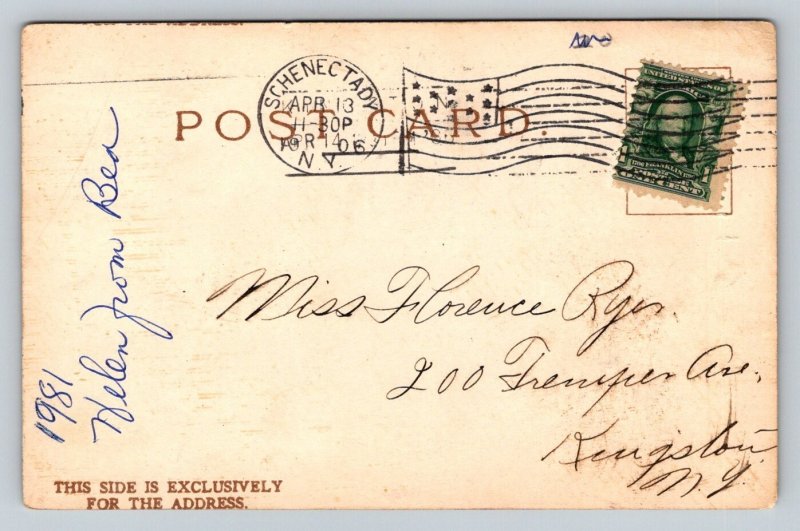 POST CARD.
SCHENECTADY
APR 13
11-30P
N.Y.
UNITED STATES OF
FRANKLIN
ONE CENT
Miss Florence Ryer
200 Tremper Ave.
Kingston
N.Y.
1981
Helen from Bea
THIS SIDE IS EXCLUSIVELY
FOR THE ADDRESS.